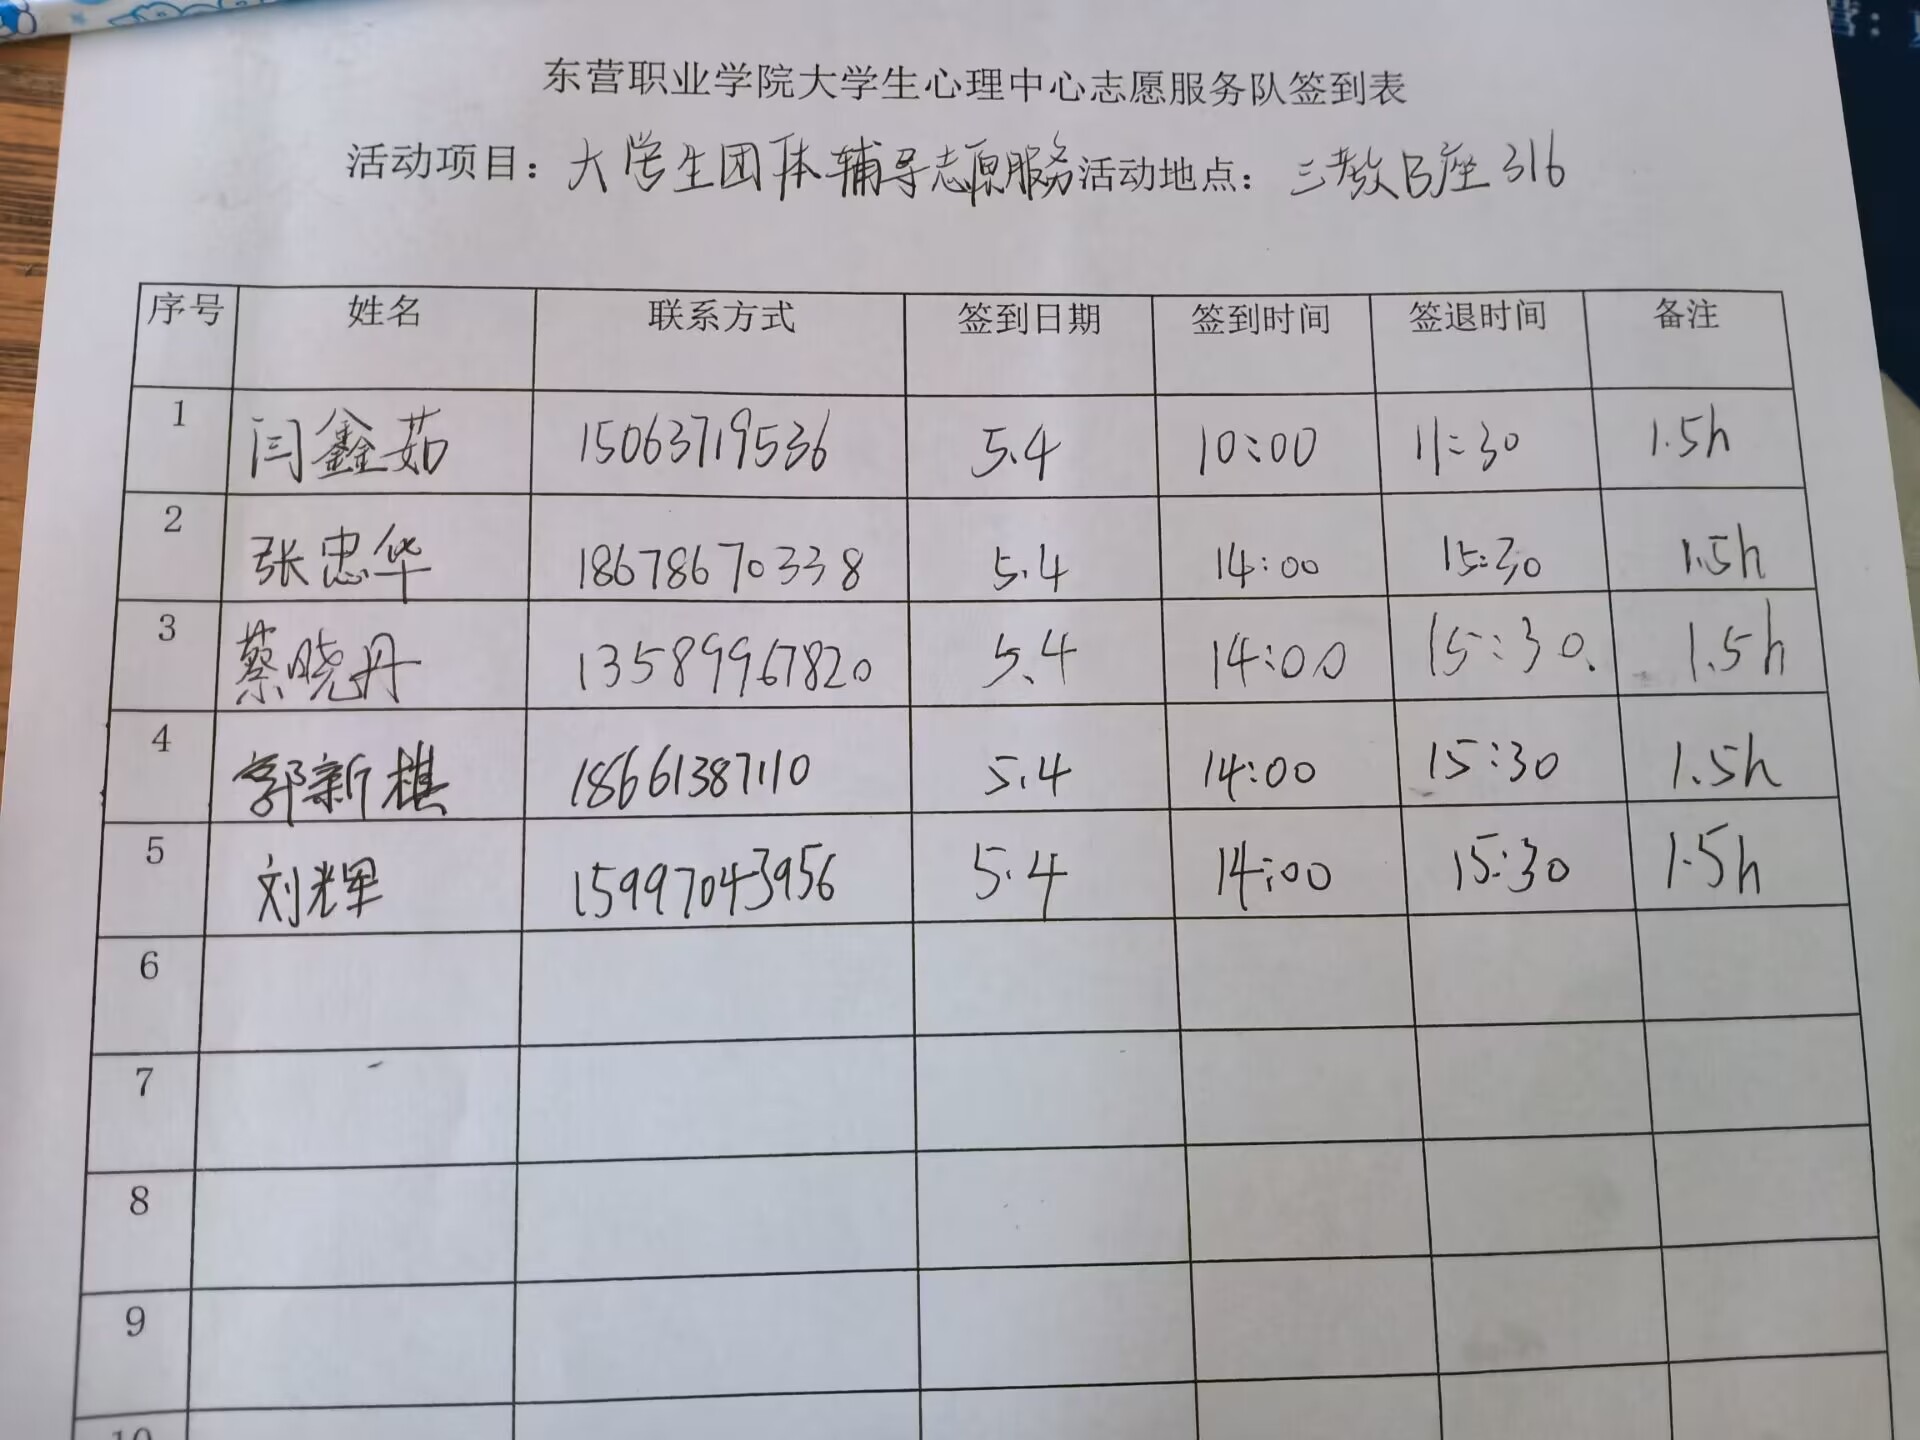 营：
东营职业学院大学生心理中心志愿服务队签到表
活动项目：大学生团体辅导志愿服务活动地点：三教B座316
序号 姓名 联系方式 签到日期 签到时间 签退时间 备注
1 闫鑫茹 15063719536 5.4 10:00 11:30 1.5h
2 张忠华 18678670338 5.4 14:00 15:30 1.5h
3 蔡晓丹 13589967820 5.4 14:00 15:30. 1.5h
4 郭新棋 18661387110 5.4 14:00 15:30 1.5h
5 刘辉 15997043956 5.4 14:00 15:30 1.5h
6
7
8
9
10